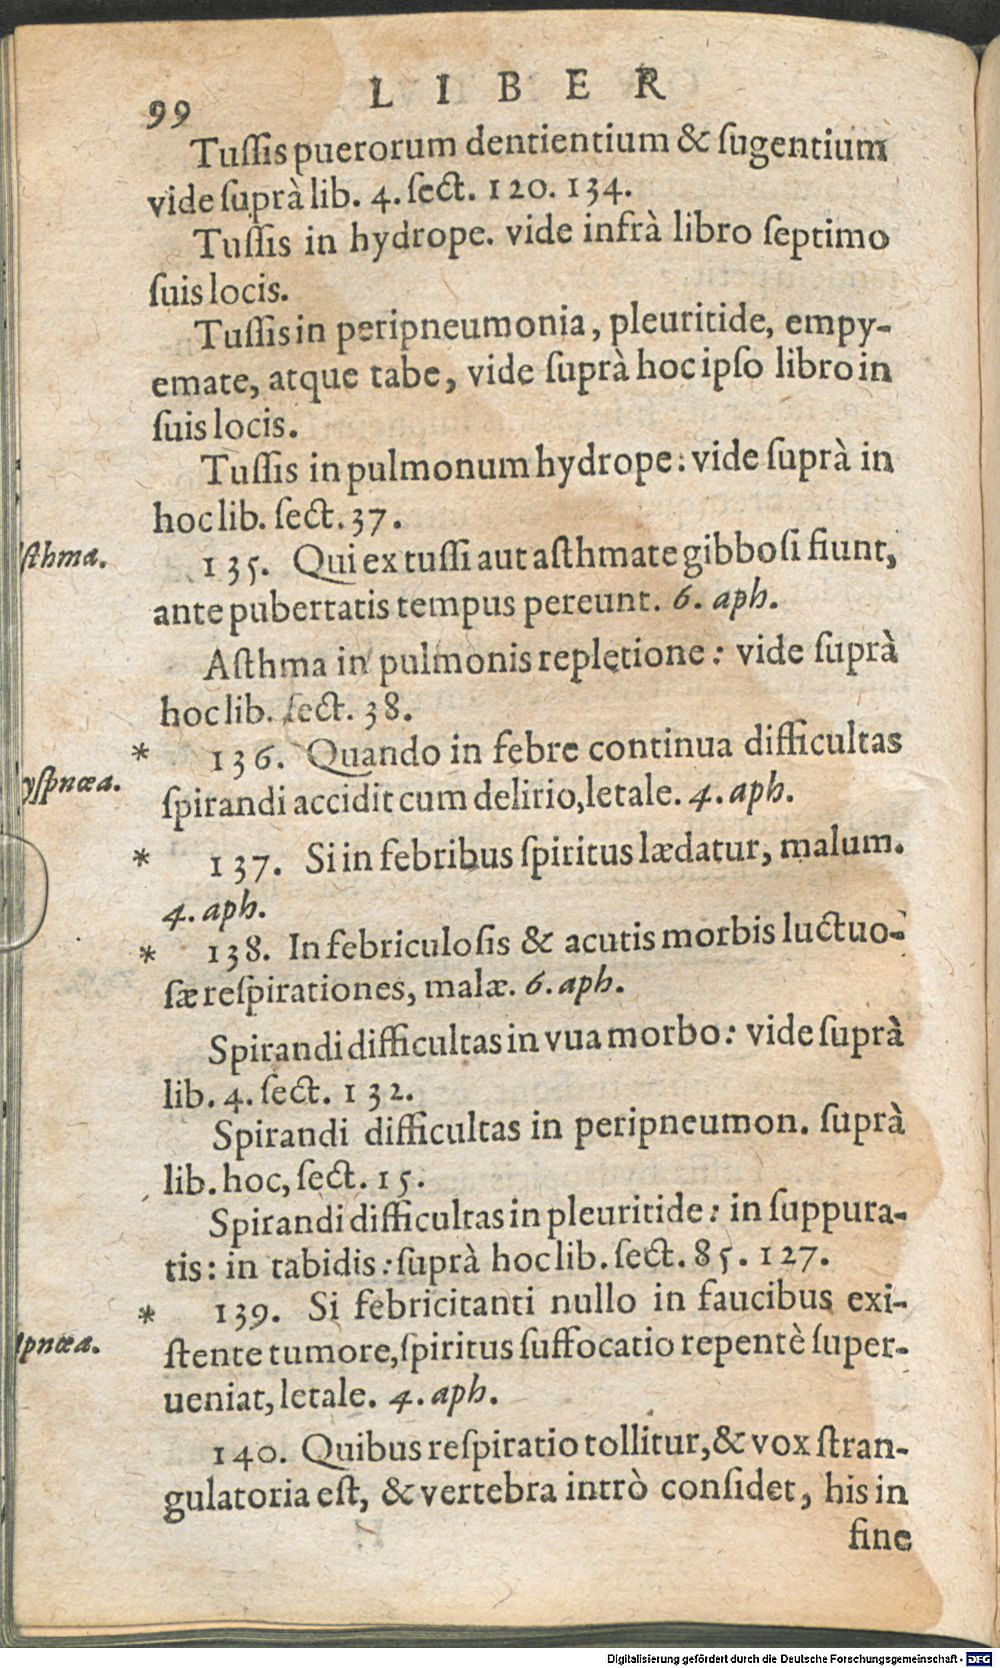 99 LIBER
Tuſſis puerorum dentientium & ſugentium
vide ſuprà lib. 4. ſect. 120. 134.
Tuſſis in hydrope. vide infrà libro ſeptimo
ſuis locis.
Tuſſis in peripneumonia, pleuritide, empy-
emate, atque tabe, vide ſuprà hoc ipſo libro in
ſuis locis.
Tuſſis in pulmonum hydrope: vide ſuprà in
hoc lib. ſect. 37.
ſthma.
135. Qui ex tuſſi aut aſthmate gibboſi fiunt,
ante pubertatis tempus pereunt. 6. aph.
Aſthma in pulmonis repletione: vide ſuprà
hoc lib. ſect. 38.
* 136. Quando in febre continua difficultas
yſpnœa.
ſpirandi accidit cum delirio, letale. 4. aph.
* 137. Si in febribus ſpiritus lædatur, malum.
4. aph.
* 138. In febriculoſis & acutis morbis luctuo-
ſæ reſpirationes, malæ. 6. aph.
Spirandi difficultas in vua morbo: vide ſuprà
lib. 4. ſect. 132.
Spirandi difficultas in peripneumon. ſuprà
lib. hoc, ſect. 15.
Spirandi difficultas in pleuritide: in ſuppura-
tis: in tabidis: ſuprà hoc lib. ſect. 85. 127.
* 139. Si febricitanti nullo in faucibus exi-
pnœa.
ſtente tumore, ſpiritus ſuffocatio repentè ſuper-
ueniat, letale. 4. aph.
140. Quibus reſpiratio tollitur, & vox ſtran-
gulatoria eſt, & vertebra intrò conſidet, his in
fine
Digitalisierung gefördert durch die Deutsche Forschungsgemeinschaft - DFG